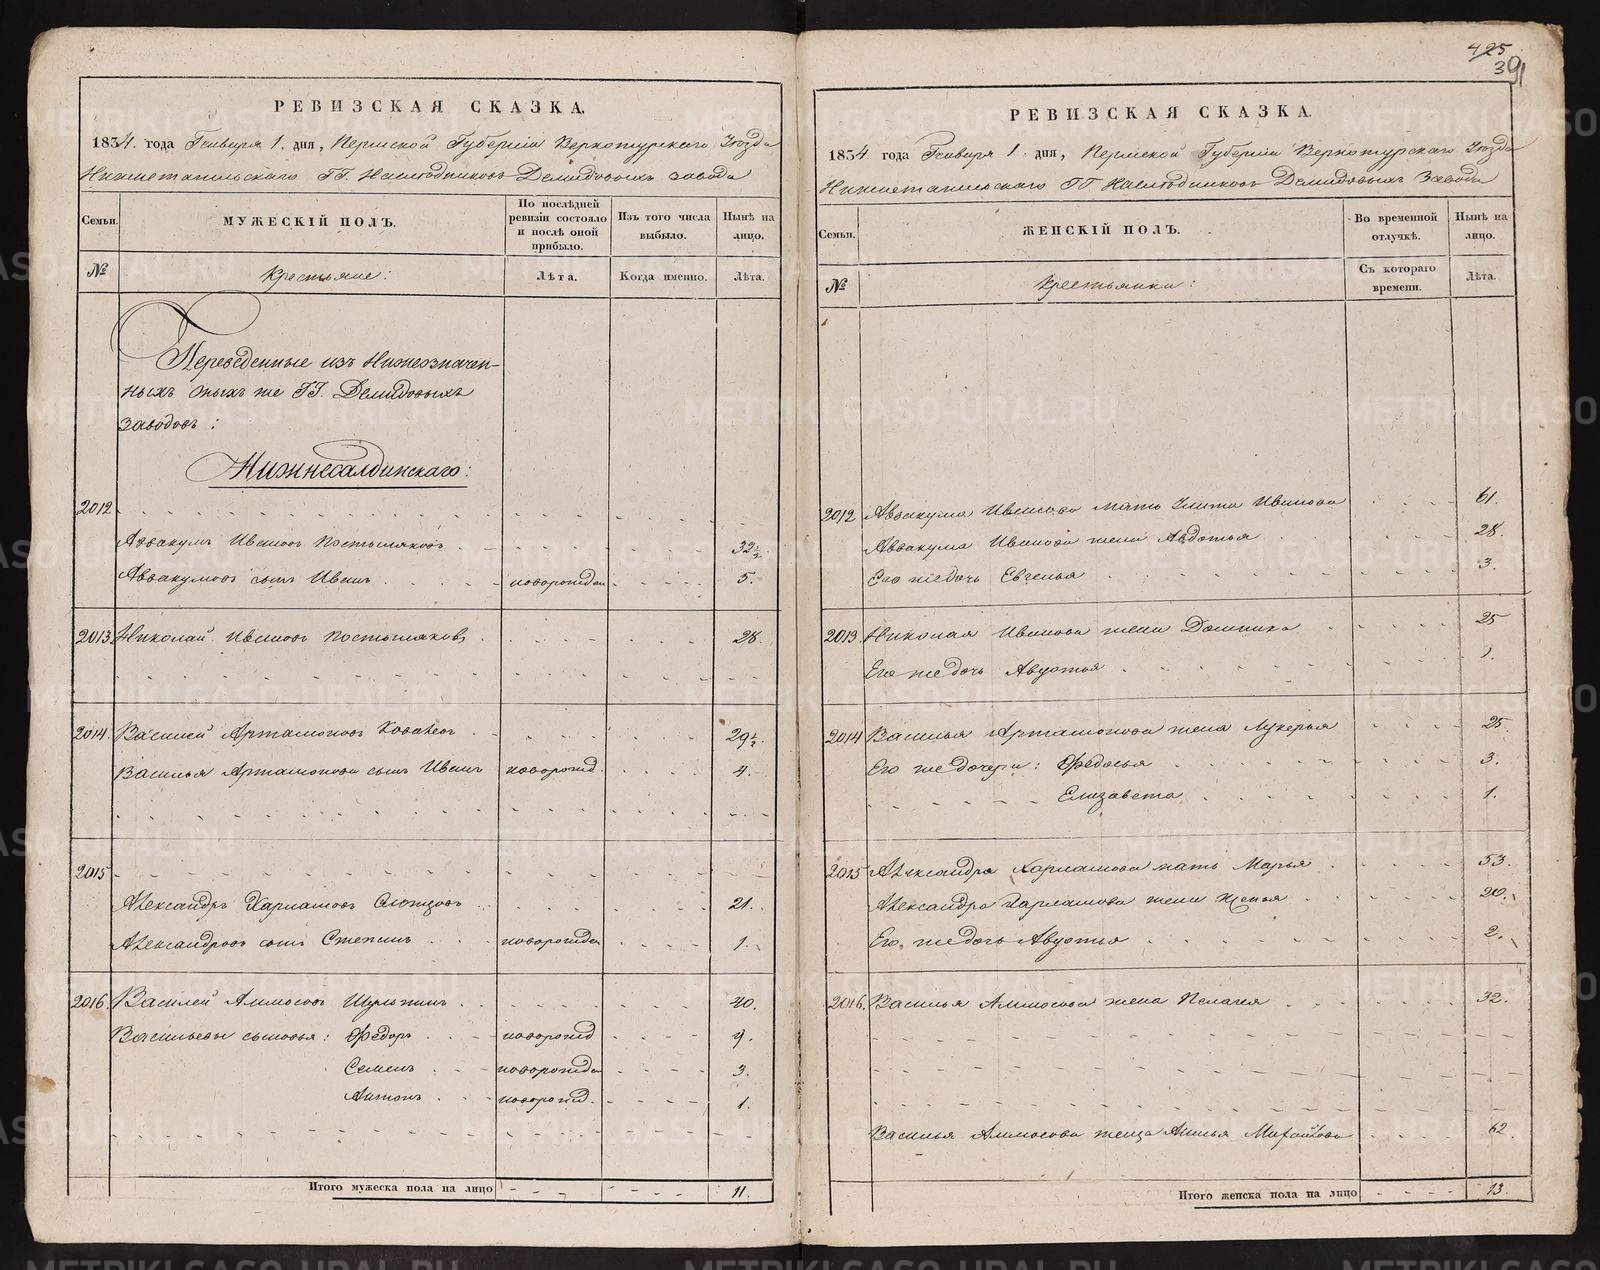 425
391
РЕВИЗСКАЯ СКАЗКА.
1834. года Генваря 1. дня, Пермской Губерніи Верхотурскаго Уѣзда
Нижнетагильскаго ГГ. Наслѣдниковъ Демидовыхъ завода
Семьи.
МУЖЕСКІЙ ПОЛЪ.
По послѣдней ревизіи состояло и послѣ оной прибыло.
Изъ того числа выбыло.
Нынѣ на лицо.
№
Крестьяне:
Лѣта.
Когда именно.
Лѣта.
Переведенные изъ Нижеозначен-
ныхъ оныхъ же ГГ. Демидовыхъ
заводовъ:
Нижнесалдинскаго:
2012
Аввакумъ Ивановъ Постыляковъ 32½
Аввакумовъ сынъ Иванъ новорожден 5.
2013. Николай Ивановъ Постыляковъ 28.
2014. Василей Артамоновъ 29½.
Василья Артамонова сынъ Иванъ новорожд 4.
2015
Александръ Харлamовъ Слотцовъ 21.
Александровъ сынъ Степанъ новорожден 1.
2016. Василей Аммосовъ 40.
Васильевы сыновья: Федоръ новорожд 9.
Семенъ новорожден 3.
Антонъ новорожд. 1.
Итого мужеска пола на лицо 11.
РЕВИЗСКАЯ СКАЗКА.
1834. года Генваря 1. дня, Пермской Губерніи Верхотурскаго Уѣзда
Нижнетагильскаго ГГ. Наслѣдниковъ Демидовыхъ Завода
Семьи.
ЖЕНСКІЙ ПОЛЪ.
Во временной отлучкѣ.
Нынѣ на лицо.
№
Крестьянки:
Съ котораго времени.
Лѣта.
2012 Аввакума Иванова мать Улита Иванова 61.
Аввакума Иванова жена Авдотья 28.
Его же дочь Евгенья 3.
2013. Николая Иванова жена Домника 25
Его же дочь Авдотья 1.
2014 Василья Артамонова жена Лукерья 25
Его же дочери: Федосья 3.
Елизавета 1.
2015 Александра Харламова мать Марья 53.
Александра Харламова жена Ксенья 20.
Его же дочь Авдотья 2.
2016. Василья Аммосова жена Пелагея 32.
Василья Аммосова теща Анна 62.
Итого женска пола на лицо 13.
METRIKI.GASO-URAL.RU